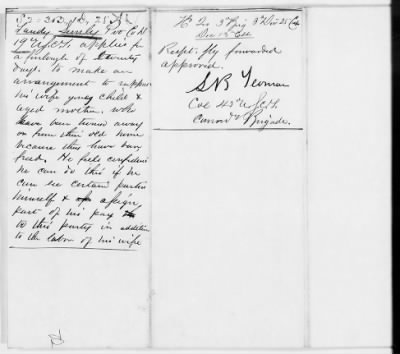 3d Brig 2d Div 25 A.C.
Sandy Lursly Pvt Co H
19th U.S.C.T. applies for
a furlough of Twenty
days. to make an
arrangement to support
his wife young child &
aged mother. who
have been turned away
from their old home
because they have been
freed. He feels confident
he can do this if he
can see certain parties
himself & assign
part of his pay
to this party in addition
to the labor of his wife
Hd Qrs 3d Brig 3d Div 25 Corps
Dec 15th
Respt. fly forwarded
approved.
Yeoman
Col 43d U.S.C.T.
Comd Brigade.